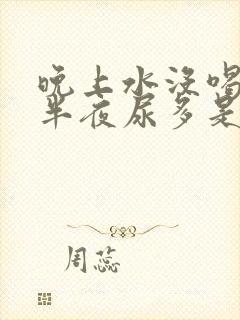 晚上水没喝
半夜尿多是
周蕊